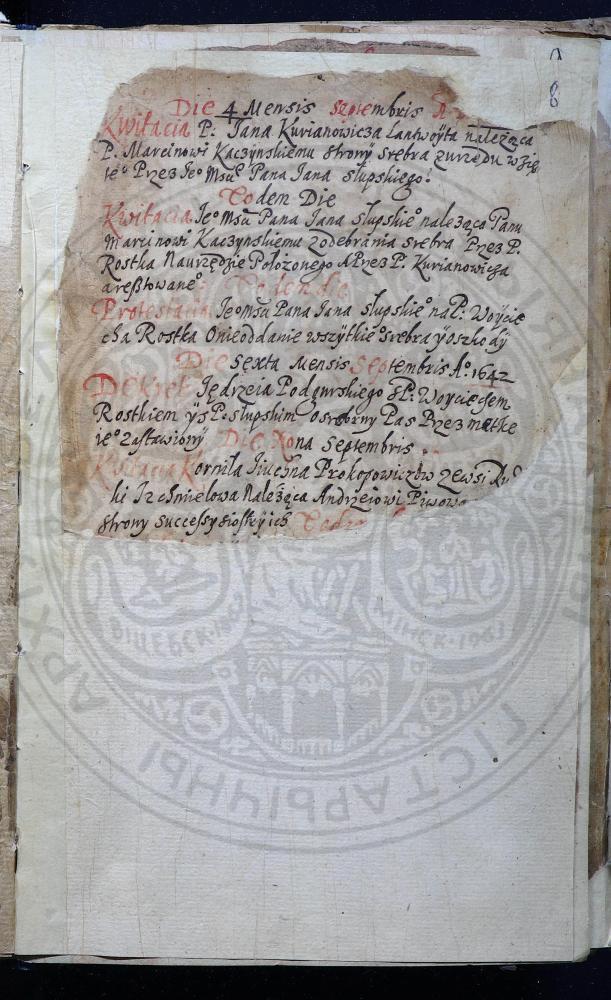 8
Die 4 Mensis Septembris A
Kwitacia P. Jana Kurianowicza Lantwoyta należąca
P. Marcinowi Kaczynskiemu strony srebra z urzędu wzię
te° Przez Je° Mści Pana Jana Słupskiego.
Eodem Die
Kwitacia Je° Mści Pana Jana Słupskie° należąca Panu
Marcinowi Kaczynskiemu z odebrania srebra Przez P.
Rostka Na urzędzie Położonego A Przez P. Kurianowicza
aresztowane° Eodem die
Protestacia Je° Mści Pana Jana Słupskie° na P. Woycie
cha Rostka O nieoddanie wszytkie° srebra y o szkody
Die sexta Mensis Septembris A°. 1642
Dekret Jędrzeia Podgurskiego s P. Woyciechem
Rostkiem y s P. Słupskim O srebrny Pas Przez matkę
ie° zastawiony Die Nona Septembris
Kwitacia Kornila Prokopowiczow ze wsi
ki Iz chmielowa Należąca Andrzeiowi Piwowa
strony successy siostry ich Eodem
АРХІ ГІСТАРЫЧНЫ
ВІЦЕБСК МІНСК